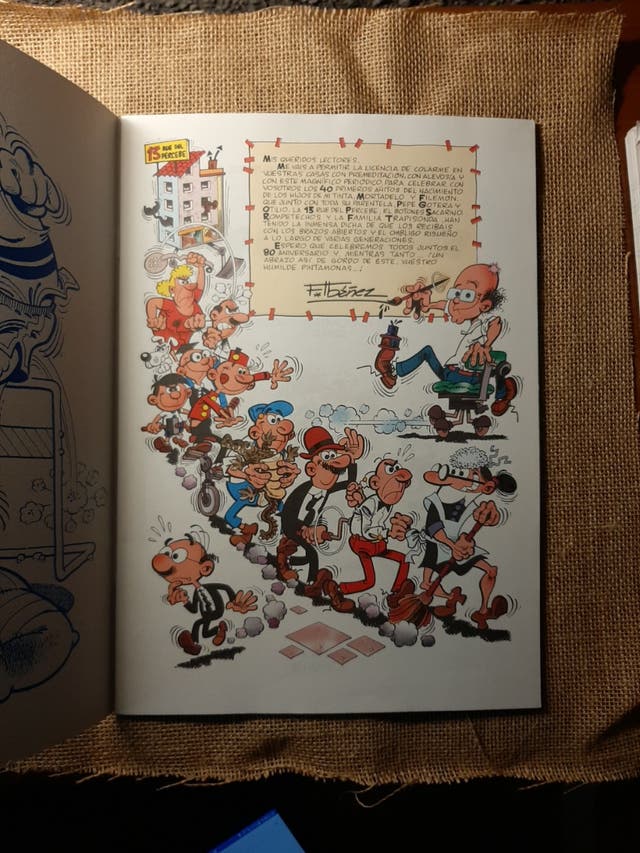 13 RUE DEL
PERCEBE
MIS QUERIDOS LECTORES:
ME VAIS A PERMITIR LA LICENCIA DE COLARME EN
VUESTRAS CASAS CON PREMEDITACIÓN, CON ALEVOSÍA Y
CON ESTE MAGNÍFICO PERIÓDICO, PARA CELEBRAR CON
VOSOTROS LOS 40 PRIMEROS AÑITOS DEL NACIMIENTO
DE LOS HIJOS DE MI TINTA, MORTADELO Y FILEMÓN...
QUE JUNTO CON TODA SU PARENTELA, PEPE GOTERA Y
OTILIO, LA 13 RUE DEL PERCEBE, EL BOTONES SACARINO,
ROMPETECHOS Y LA FAMILIA TRAPISONDA, HAN
TENIDO LA INMENSA DICHA DE QUE LOS RECIBAIS
CON LOS BRAZOS ABIERTOS Y EL OMBLIGO RISUEÑO
A LO LARGO DE VARIAS GENERACIONES.
ESPERO QUE CELEBREMOS TODOS JUNTOS EL
80 ANIVERSARIO Y, MIENTRAS TANTO... ¡UN
ABRAZO ASÍ DE GORDO DE ESTE, VUESTRO
HUMILDE PINTAMONAS...!
F. Ibáñez